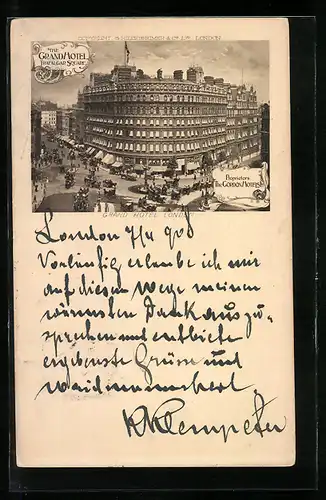 COPYRIGHT
LONDON
THE
GRAND HOTEL
TRAFALGAR SQUARE
Proprietors
The GORDON HOTELS Ld
GRAND HOTEL LONDON
London 7/4 900
Vorläufig erlaube ich mir
auf diesem Wege meinen
wärmsten Dank auszu-
sprechen und entbiete
ergebenste Grüsse und